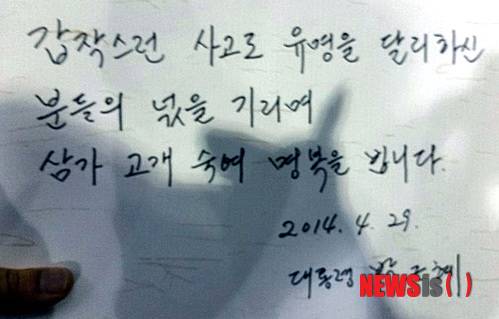 갑작스런 사고로 유명을 달리하신
분들의 넋을 기리며
삼가 고개 숙여 명복을 빕니다.
2014. 4. 29.
대통령 박근혜
NEWSis()